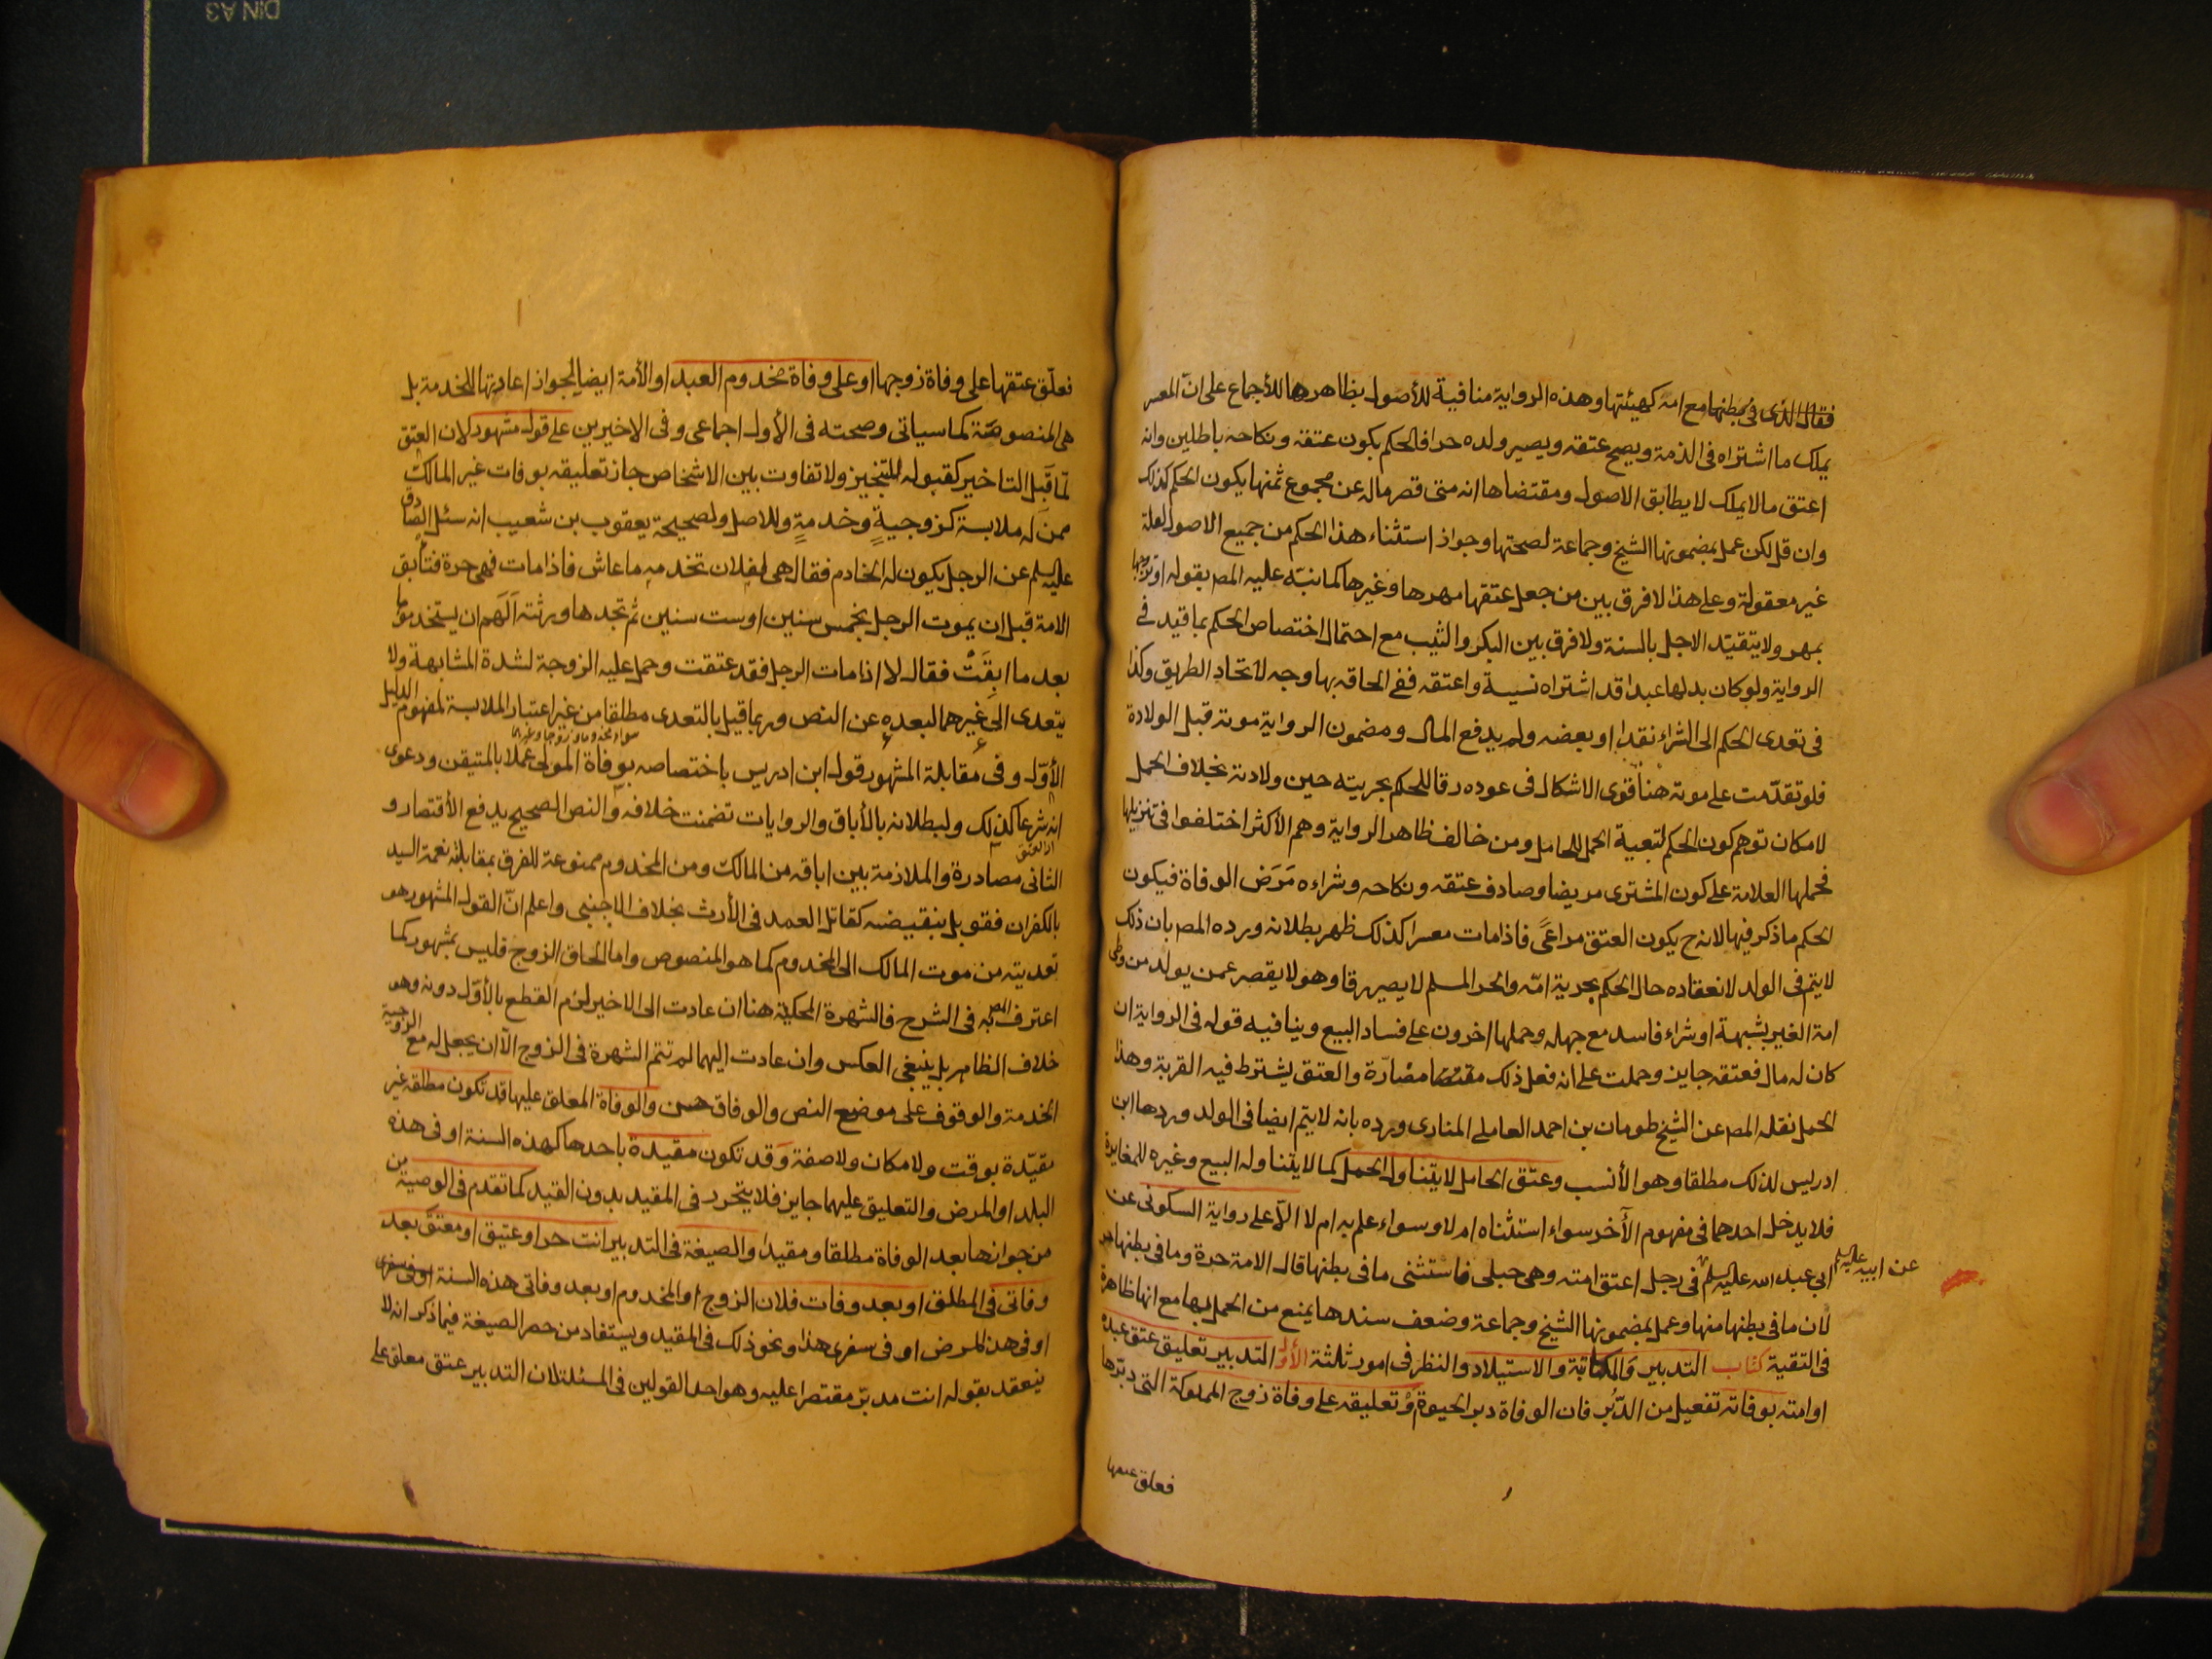 فقال الذى فى بطنها مع امه كهيئتها وهذه الرواية منافية للأصول بظاهرها للأجماع على انّ المعسر
يملك ما اشتراه فى الذمة ويصح عتقه ويصير ولده حرا فالحكم بكون عتقه ونكاحه باطلين وانه
اعتق مالا يملك لا يطابق الاصول ومقتضاها انه متى قصر ماله عن مجموع ثمنها يكون الحكم كذلك
وان قل لكن عمل بمضمونها الشيخ وجماعة لصحتها وجواز استثناء هذا الحكم من جميع الاصول لعلة
غير معقولة وعلى هذا لا فرق بين من جعل عتقها مهرها وغيرها كما نبّه عليه المص بقوله او تزوجها
بمهر ولا يتقيّد الاجل بالسنة ولا فرق بين البكر والثيب مع احتمال اختصاص الحكم بما قيد فى
الرواية ولو كان بدلها عبدا قد اشتراه نسيئة واعتقه ففى الحاقه بها وجه لاتحاد الطريق وكذا
فى تعدى الحكم الى الشراء نقدا او بعضه ولم يدفع المال ومضمون الرواية موته قبل الولادة
فلو تقدّمت على موته هنا قوى الاشكال فى عوده رقا للحكم بحريته حين ولادته بخلاف الحمل
لامكان توهم كون الحكم لتبعية الحمل للحامل ومن خالف ظاهر الرواية وهم الأكثر اختلفوا فى تنزيلها
فحملها العلامة على كون المشترى مريضا وصادف عتقه ونكاحه وشراءه مَرَض الوفاة فيكون
الحكم ما ذكر فيها لانه ح يكون العتق مراعًى فاذا مات معسرا كذلك ظهر بطلانه ورده المص بان ذلك
لا يتم فى الولد لانعقاده حال الحكم بحرية امّه والحر المسلم لا يصير رقا وهو لا يقصر عمن يولد من وطى
امة الغير بشبهة او شراء فاسد مع جهله وحملها اخرون على فساد البيع وينافيه قوله فى الرواية ان
كان له مال فعتقه جايز وحملت على انه فعل ذلك مضارّة والعتق يشترط فيه القربة وهذا
الحمل نقله المص عن الشيخ طومان بن احمد العاملى المنارى ورده بانه لا يتم ايضا فى الولد وردها ابن
ادريس لذلك مطلقا وهو الأنسب وعتق الحامل لا يتناول الحمل كما لا يتناوله البيع وغيره للمغايرة
فلا يدخل احدهما فى مفهوم الآخر سواء استثناه ام لا وسواء علم به ام لا الّا على رواية السكونى عن
ابى عبد الله عليه السلم عن ابيه عليه السلم فى رجل اعتق امته وهى حبلى فاستثنى ما فى بطنها قال الامة حرة وما فى بطنها حر
لان ما فى بطنها منها وعمل بمضمونها الشيخ وجماعة وضعف سندها يمنع من العمل بها مع انها ظاهرة
فى التقية كتاب التدبير والمكاتبة والاستيلاد والنظر فى امور ثلثة الأول التدبير تعليق عتق عبده
او امته بوفاته تفعيل من الدّبُر فان الوفاة دبر الحيوة وتعليقه على وفاة زوج المملوكة التى دبّرها
فعلق عتقها
فعلّق عتقها على وفاة زوجها او على وفاة مخدوم العبد او الأمة ايضا لجواز اعارتها للخدمة بل
هى المنصوصة كما سياتى وصحته فى الأول اجماعى وفى الاخيرين على قول مشهور لان العتق
لمّا قبل التاخير كقبوله للتنجيز ولا تفاوت بين الاشخاص جاز تعليقه بوفات غير المالك
ممن له ملابسة كزوجيةٍ وخدمةٍ وللاصل ولصحيحة يعقوب بن شعيب انه سئل الصادق
عليه السلم عن الرجل يكون له الخادم فقال هى لفلان تخدمه ما عاش فاذا مات فهى حرة فتابق
الامة قبل ان يموت الرجل بخمس سنين او ست سنين ثم تجدها ورثته الهم ان يستخدموها
بعد ما ابِقَتْ فقال لا اذا مات الرجل فقد عتقت وحمل عليه الزوجة لشدة المشابهة ولا
يتعدى الى غيرهما لبعده عن النص وربما قيل بالتعدى مطلقا من غير اعتبار الملابسة لمفهوم الدليل
الأوّل وفى مقابلة المشهور قول ابن ادريس باختصاصه بوفاة المولى عملا بالمتيقن ودعوى
انه شرعا كذلك ولبطلانه بالأباق والروايات تضمنت خلافه والنص الصحيح يدفع الأقتصار و
الثانى مصادرة والملازمة بين اباقه من المالك ومن المخدوم ممنوعة للفرق بمقابلة نعمة السيد
بالكفران فقوبل بنقيضه كقاتل العمد فى الأرث بخلاف الاجنبى واعلم انّ القول المشهور هو
تعديته من موت المالك الى المخدوم كما هو المنصوص واما الحاق الزوج فليس بمشهور كما
اعترف به المص فى الشرح فالشهرة المحكية هنا ان عادت الى الاخير لزم القطع بالأوّل دونه وهو
خلاف الظاهر بل ينبغى العكس وان عادت اليهما لم تتم الشهرة فى الزوج الّا ان يجعل له مع الزوجية
الخدمة والوقوف على موضع النص والوفاق حسن والوفاة المعلق عليها قد تكون مطلقة غير
مقيّدة بوقت ولا مكان ولا صفة وقد تكون مقيدة باحدها كهذه السنة او فى هذه
البلد او المرض والتعليق عليهما جايز فلا يتحرر فى المقيد بدون القيد كما تقدم فى الوصية من
من جوازها بعد الوفاة مطلقا ومقيدا والصيغة فى التدبير انت حر او عتيق او معتق بعد
وفاتى فى المطلق او بعد وفات فلان الزوج او المخدوم او بعد وفاتى هذه السنة او فى سفرى
او فى هذا المرض او فى سفرى هذا ونحو ذلك فى المقيد ويستفاد من حصر الصيغة فيما ذكر انه لا
ينعقد بقوله انت مدبّر مقتصرا عليه وهو احد القولين فى المسئلة لان التدبير عتق معلق على